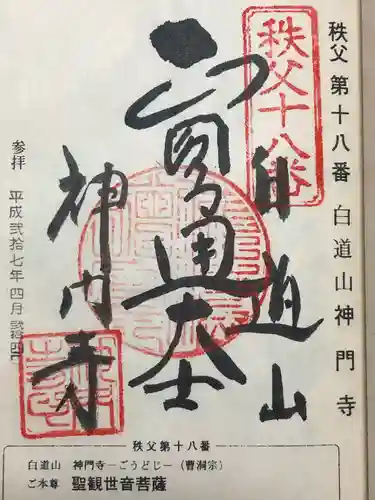 秩父 第十八番 白道山 神門寺
秩父十八番
白道山
圓通大士
神門寺
参拝 平成弐拾七年四月弐拾四日
秩父第十八番
白道山 神門寺－ごうどじ－（曹洞宗）
ご本尊 聖観世音菩薩